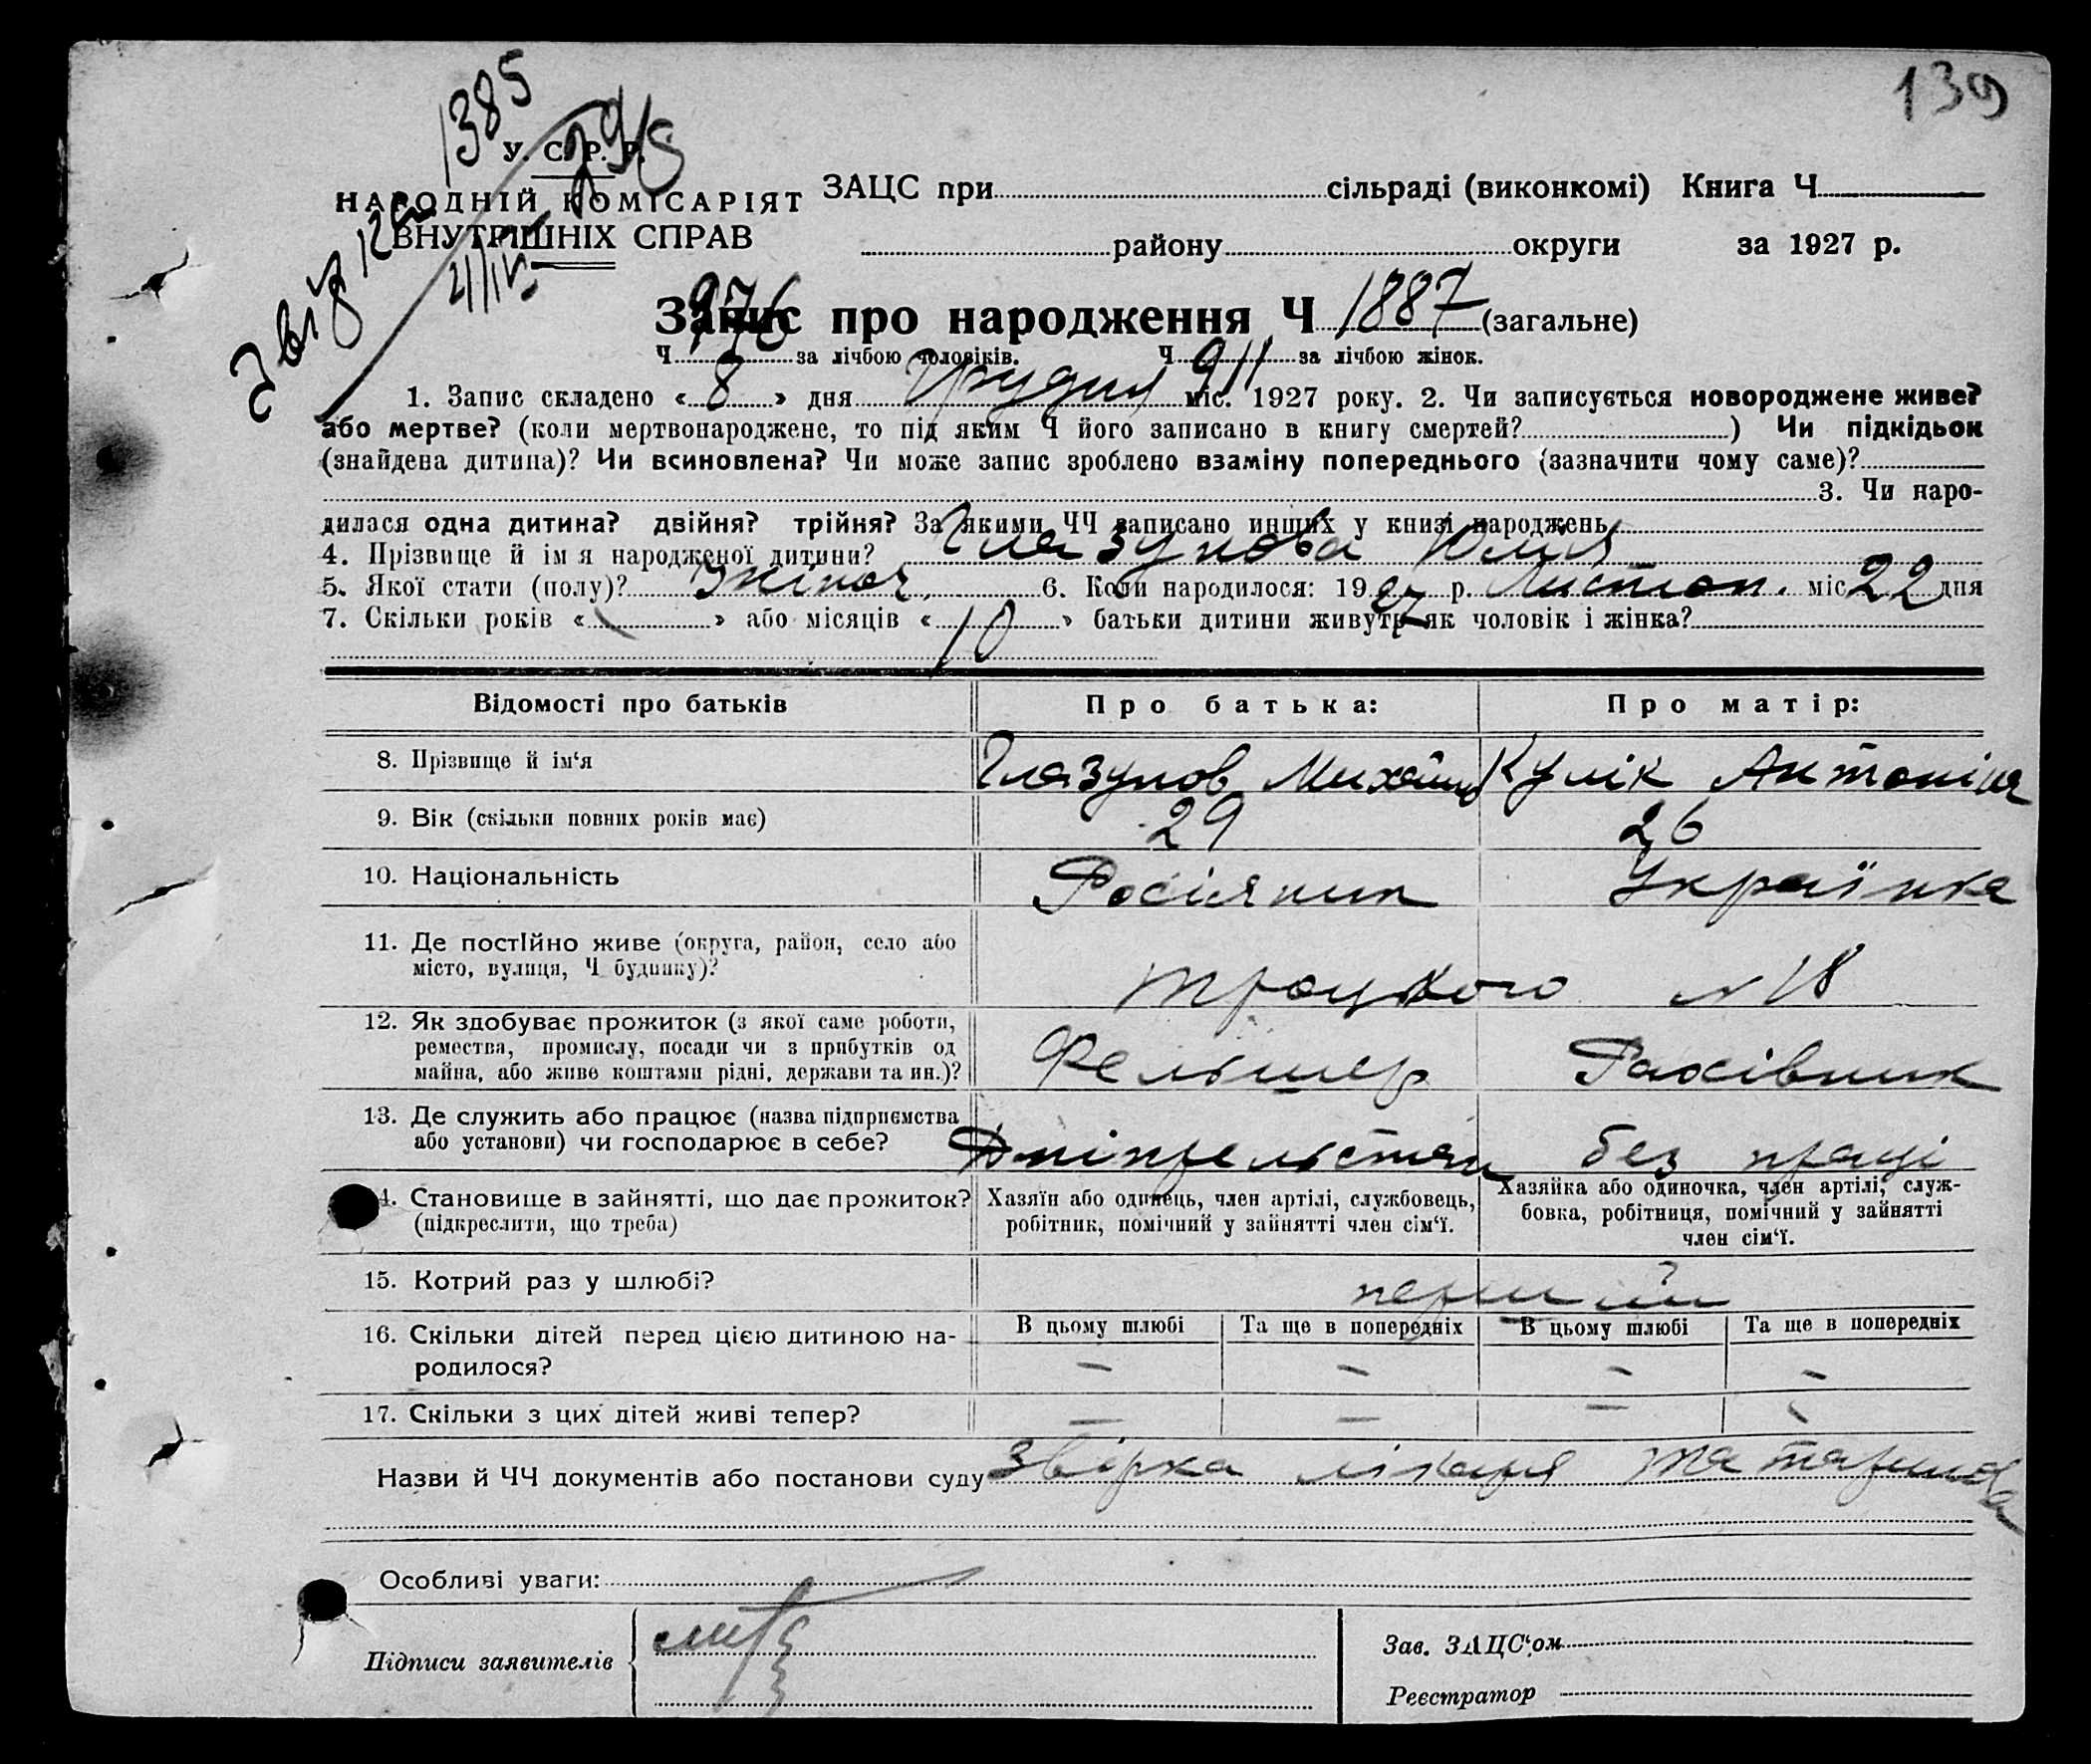 139
1385
У. С. Р. Р.
НАРОДНІЙ КОМІСАРІЯТ
ВНУТРІШНІХ СПРАВ
ЗАЦС при сільраді (виконкомі) Книга Ч
району округи за 1927 р.
Запис про народження Ч 1887 (загальне)
Ч 976 за лічбою чоловіків. Ч 911 за лічбою жінок.
1. Запис складено « 8 » дня Грудня міс. 1927 року. 2. Чи записується новороджене живе?
або мертве? (коли мертвонароджене, то під яким Ч його записано в книгу смертей? ) Чи підкідьок
(знайдена дитина)? Чи всиновлена? Чи може запис зроблено взаміну попереднього (зазначити чому саме)?
3. Чи наро-
дилася одна дитина? двійня? трійня? За якими ЧЧ записано инших у книзі народжень
4. Прізвище й ім я народженої дитини? Глазунова Юлія
5. Якої стати (полу)? жіноч. 6. Коли народилося: 1927 р. Листоп. міс 22 дня
7. Скільки років « » або місяців « 10 » батьки дитини живуть як чоловік і жінка?
Відомості про батьків Про батька: Про матір:
8. Прізвище й ім‘я Глазунов Михайло Кулік Антоніна
9. Вік (скільки повних років має) 29 26
10. Національність Росіянин Українка
11. Де постійно живе (округа, район, село або
місто, вулиця, Ч будинку)? Троцкого № 18
12. Як здобуває прожиток (з якої саме роботи,
ремества, промислу, посади чи з прибутків од
майна, або живе коштами рідні, держави та ин.)? Фельшер Рахівник
13. Де служить або працює (назва підприємства
або установи) чи господарює в себе? Дніпрельстан без праці
14. Становище в зайнятті, що дає прожиток?
(підкреслити, що треба)
Хазяїн або одинець, член артілі, службовець,
робітник, помічний у зайнятті член сім‘ї.
Хазяйка або одиночка, член артілі, служ-
бовка, робітниця, помічний у зайнятті
член сім‘ї.
15. Котрий раз у шлюбі? перший
16. Скільки дітей перед цією дитиною на-
родилося?
В цьому шлюбі Та ще в попередніх В цьому шлюбі Та ще в попередніх
– – – –
17. Скільки з цих дітей живі тепер? – – – –
Назви й ЧЧ документів або постанови суду
Особливі уваги:
Підписи заявителів
Зав. ЗАЦС‘ом
Реєстратор